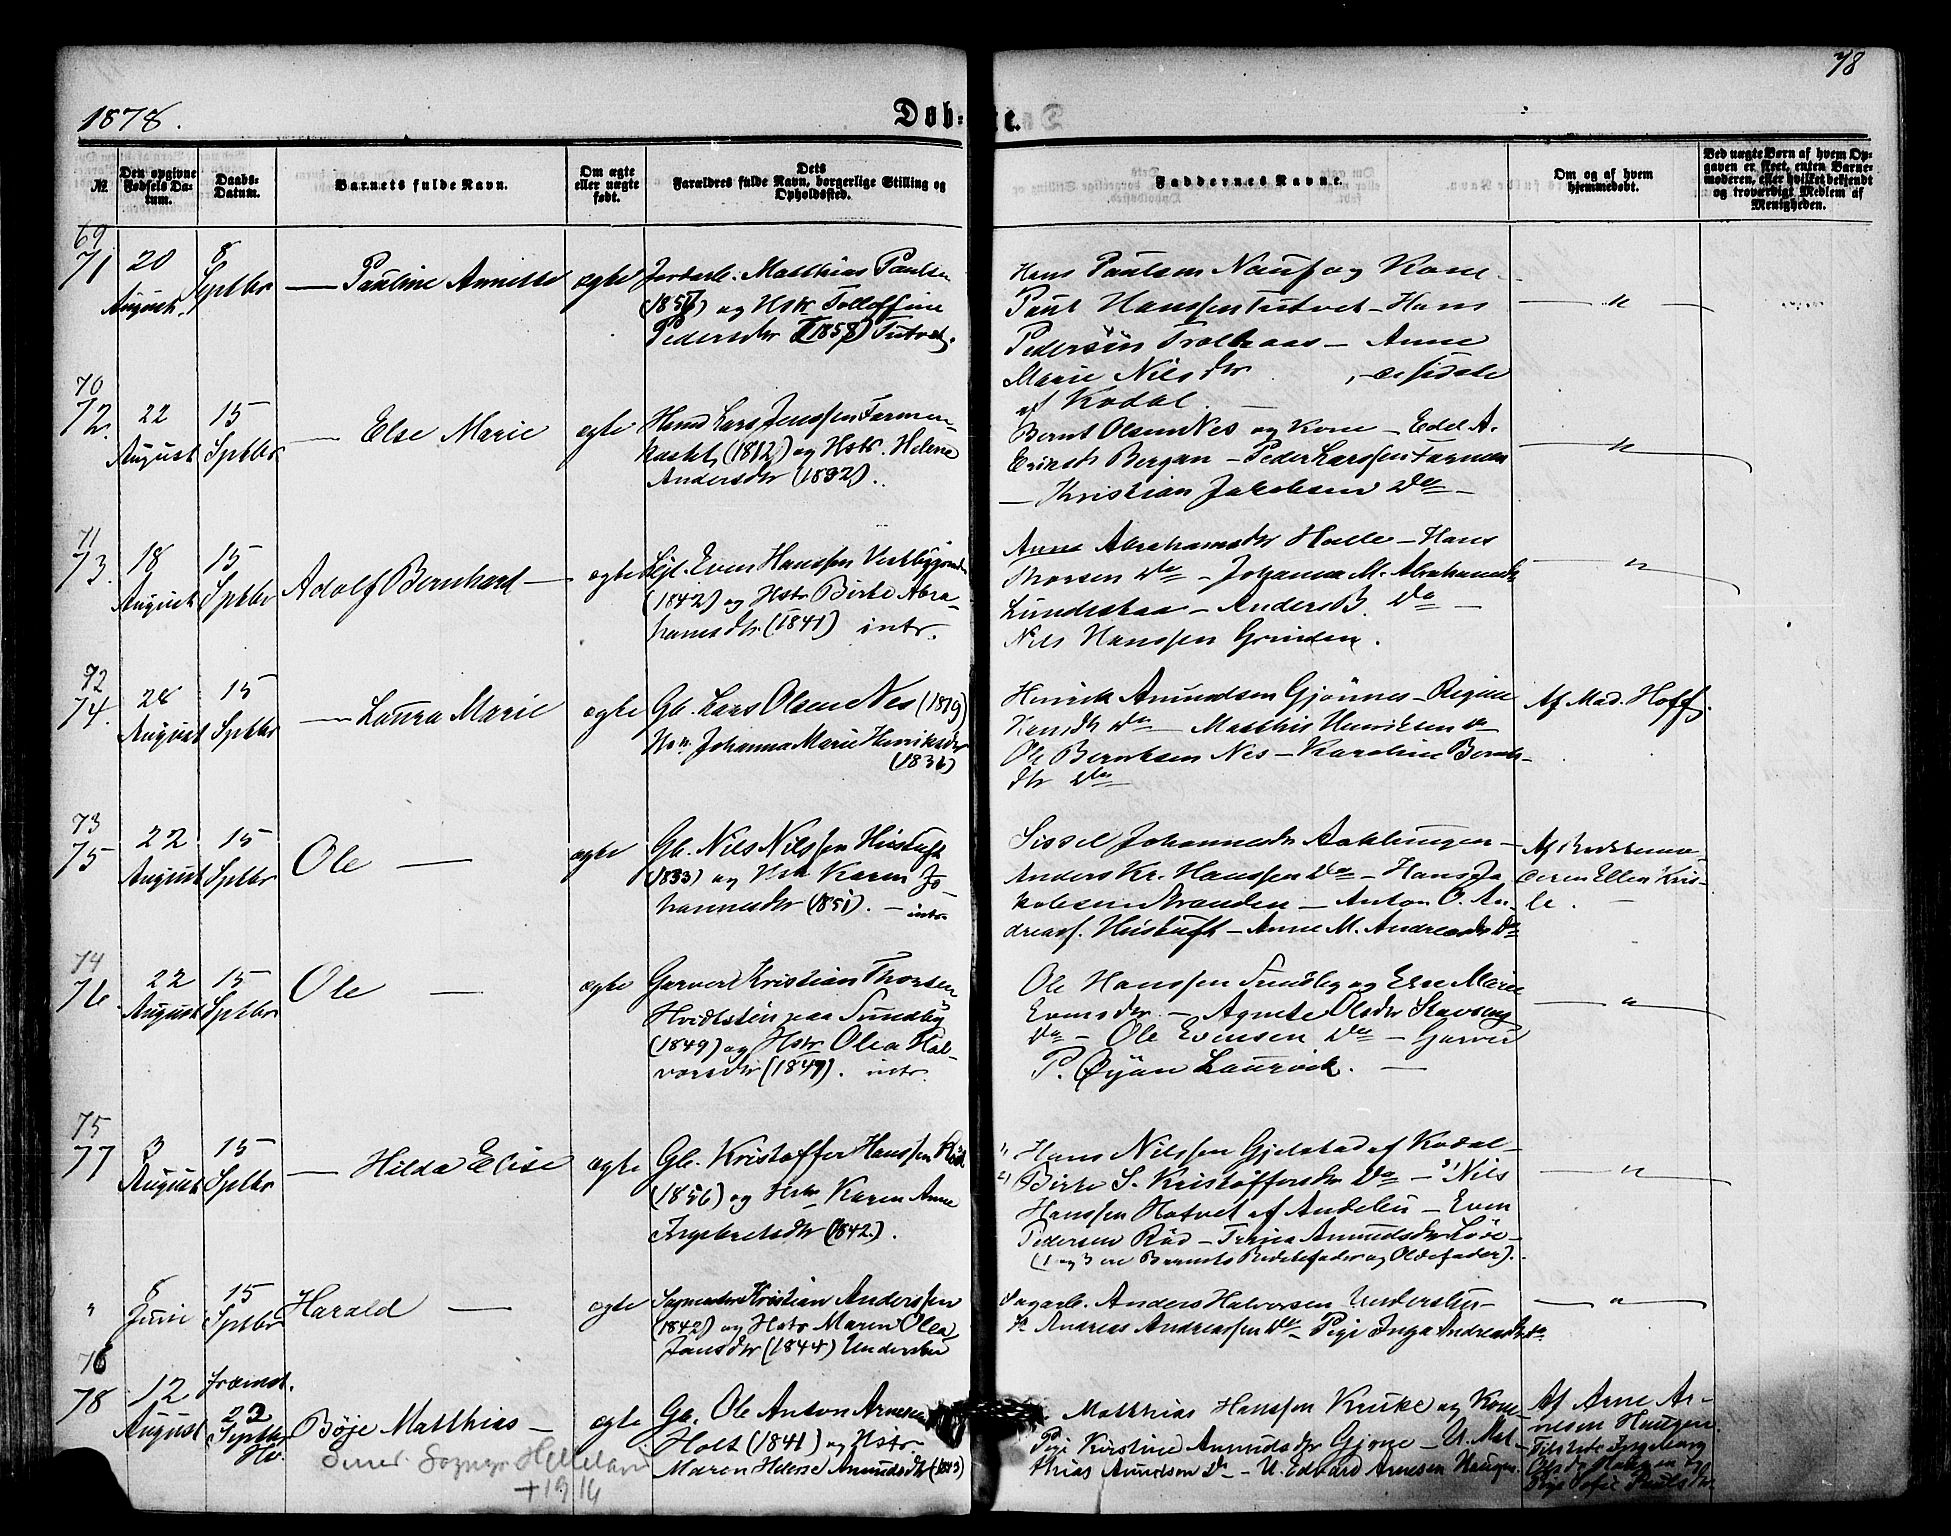 78
1878.
Døb-
te.
No.
Den opgivne Fødsels Da-
tum.
Daabs-
Datum.
Barnets fulde Navn.
Om ægte
eller uægte
født.
Dets
Forældres fulde Navn, borgerlige Stilling og
Opholdssted.
Faddernes Navne.
Om og af hvem
hjemmedøbt.
Ved uægte Børn af hvem Op-
gaven er skeet, enten Barne-
moderen, eller hvilket bekjendt
og troværdigt Medlem af
Menigheden.
69
71
20
August
8
Septbr
— Pauline Annette
ægte
Matthias Paulsen
(1856) og Hstr Tolleffine
Pedersdtr (1858) Tutvet.
Hans Paulsen og Kone
Paul Hanssen Tutvet - Hans
Pedersön Trolhaas - Anne
Marie Nilsdtr
af Kodal.
— " —
70
72.
22
August
15
Sptbr
— Else Marie
ægte
Lars Jenssen Farmen-
(1812) og Hstr. Helene
Andersdtr (1832).
Bernt Olsen Nes og Kone - Edel A.
Bergan - Peder Larssen Farmen
- Kristian Jakobsen Do -
— " —
71
73.
18
August
15
Sptbr
Adolf Bernhard —
ægte
Lejl. Even Hanssen
(1842) og Hstr Birte Abra-
hamsdtr. (1841) intr.
Anne Abrahamsdtr Holte - Hans
Thorsen Do - Johanna M. Abrahamsdtr
Lundeskaa - Anders B. Do -
Nils Hanssen Grinden.
— " —
72
74.
28
August
15
Sptbr
— Laura Marie
ægte
Gb. Lars Olsen Nes (1819)
Hstr. Johanna Marie Henriksdtr
(1836)
Henrik Amundsen Gjönnes - Regine
Do - Matthis Henriksen Do
Ole Berntsen Nes - Karoline Bernts-
dtr Do
Af Mad. Hoff.
73
75
22
August
15
Sptbr
Ole —
ægte
Gb. Nils Nilssen Histuft
(1833) og Hstr Karen Jo-
hannesdtr (1851). - intr.
Sissel Johannesdtr Aaklungen -
Anders Kr. Hanssen Do - Hans Ja
kobsen Stranden - Anton O. An-
dreass. Histuft - Anne M. Andreasdtr Do
Af Bedstemo-
deren Ellen Kris-
74
76.
22
August
15
Sptbr
Ole —
ægte
Garver Kristian Thorsen
Hvidtsten paa Sundby
(1849) og Hstr Olea Hal-
vorsdtr (1849). intr.
Ole Hanssen Sundby og Else Marie
Evensdtr. - Agnete Olsdtr
Do - Ole Evensen Do - Garver
P. Øyan Laurvik. —
— " —
75
77
3
August
15
Sptbr
— Hilda Elise
ægte
Gb. Kristoffer Hanssen Röd
(1856) og Hstr Karen Anne
Ingebretsdtr (1842.).
1) Hans Nilssen Gjelstad af Kodal -
2) Birte S. Kristoffersdtr Do - 3) Nils
Hanssen Hotvet af Andebu - Even
Pedersen Röd - Amundsdtr Löve -
(1 og 3 ere Barnets Bedstefader og Oldefader).
— " —
"
8
Juni
15
Sptbr
Harald —
ægte
Kristian Anderssen
(1842) og Hstr Maren Olea
Jansdtr (1844) Undersbo
Dagarb. Anders Halvorsen Undersbo -
Andreas Andreassen Do - Pige Inga Andreasdtr Do
— " —
76
78
12
August
Fræmst.
22
Septbr
Ho.
Böje Matthias —
Helleland
+1916
ægte
Gb. Ole Anton Arnesen
Holt (1841) og Hstr.
Maren Helene Amundsdtr (1843)
Matthias Hanssen Kruke og Kone -
Pige Kirstine Amundsdtr Gjone - U. Mat-
thias Amundsen Do - U. Edvard Arnesen Haugen.
Af Arne Ar-
nesen Haugen.
Ingeborg